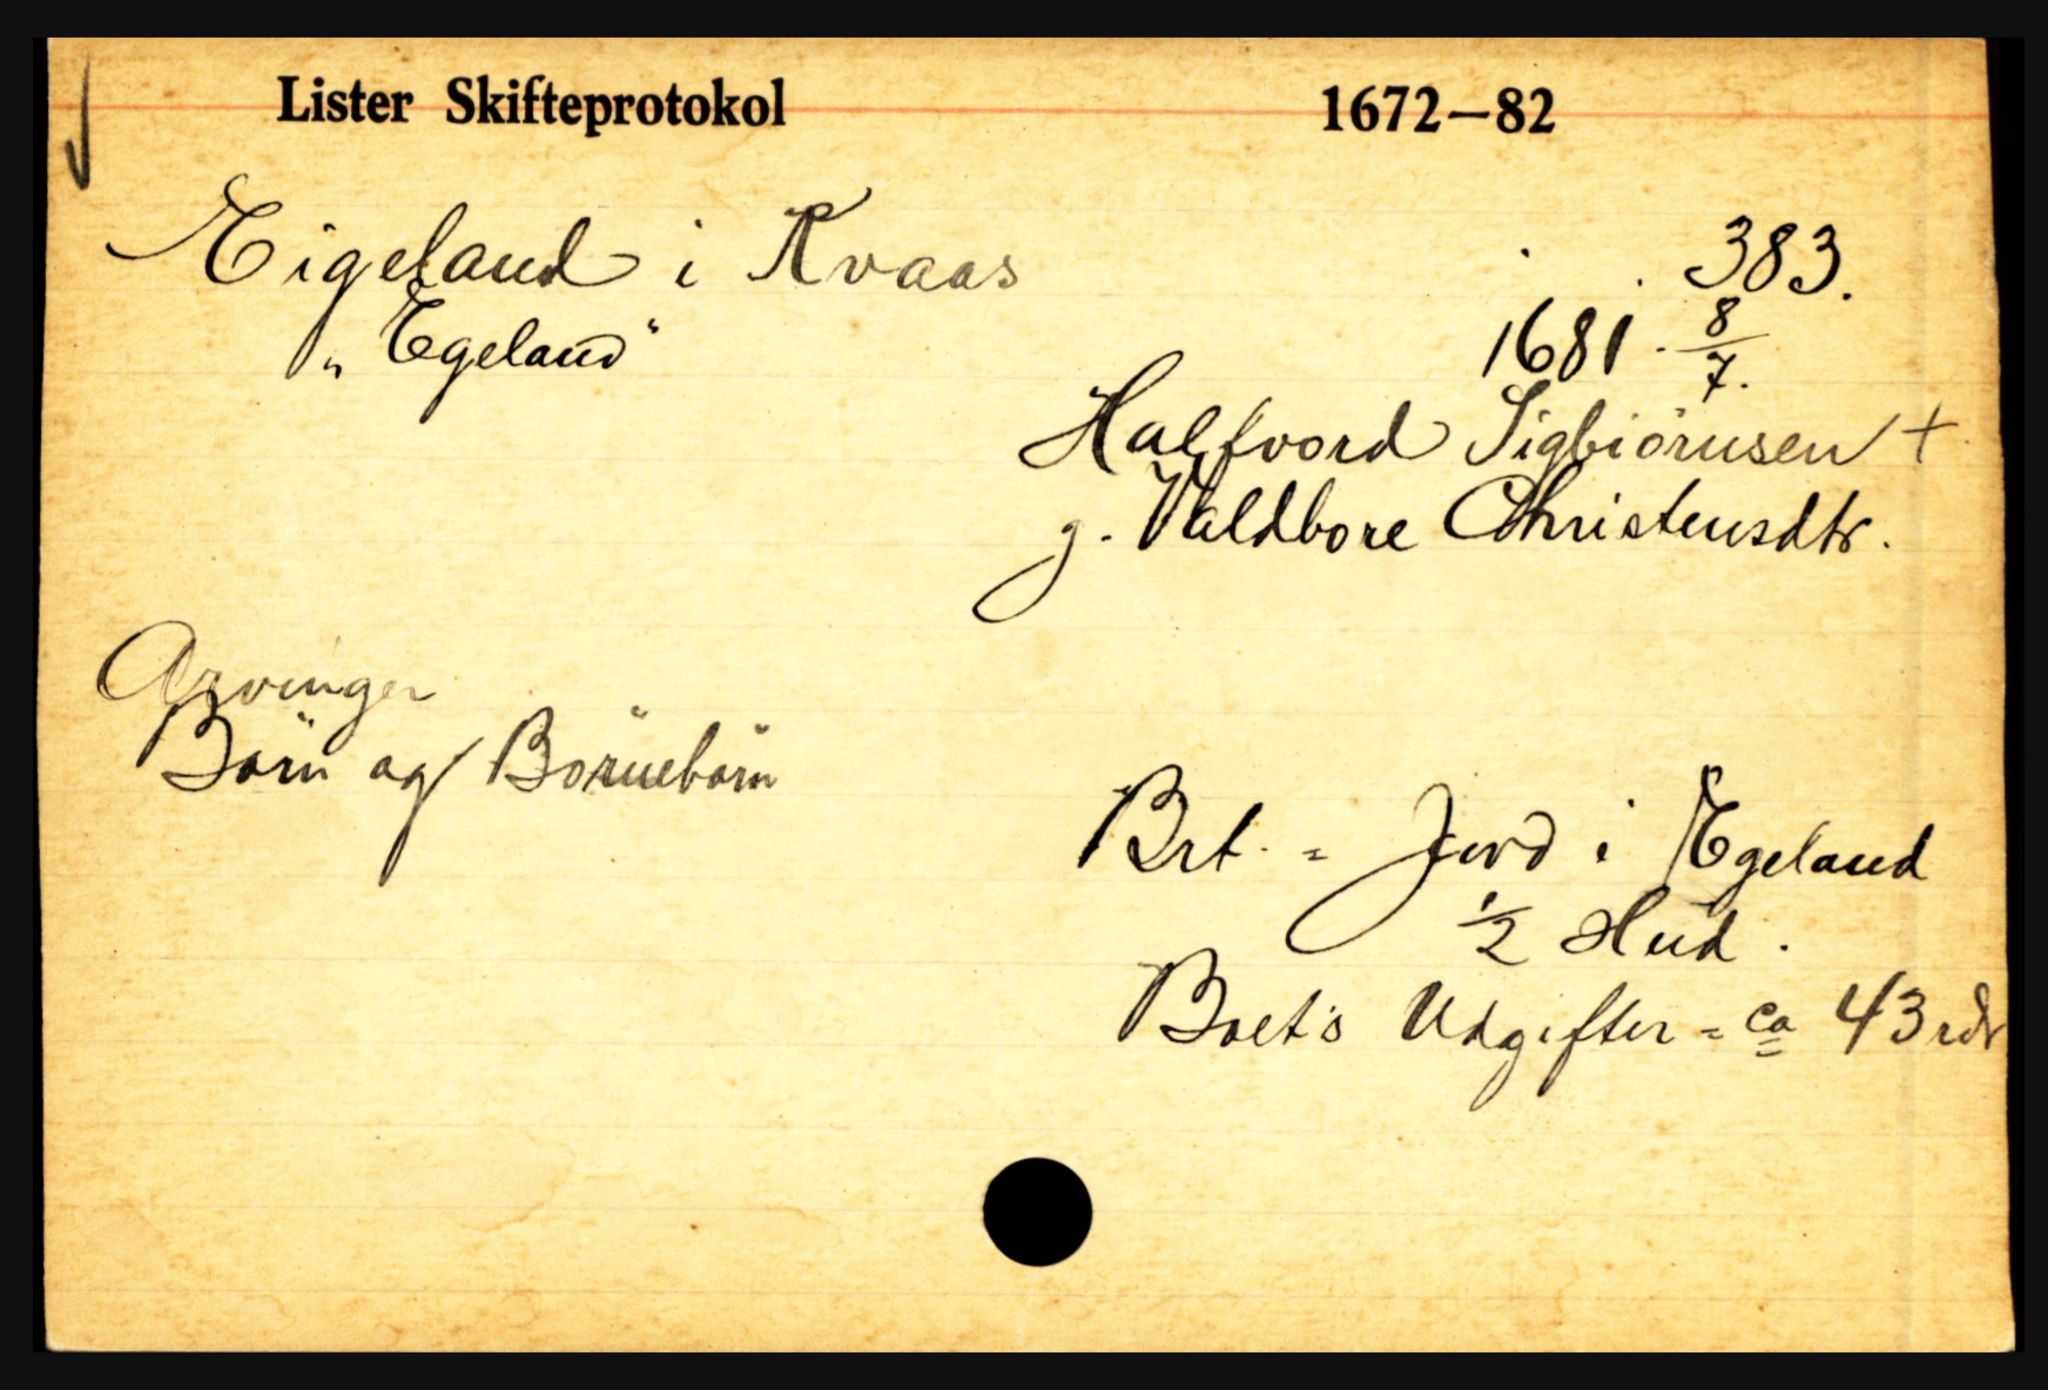 Lister Skifteprotokol 1672—82
Eigeland i Kvaas 383.
„Egeland“ 1681. 8/7.
Halfvord Sigbiörnsen +
g. Valdbore Christensdtr.
Arvinger
Börn og Börnebörn
Brt. = Jord i Egeland
1/2 Hud.
Boet's Udgifter = ca 43 rdr